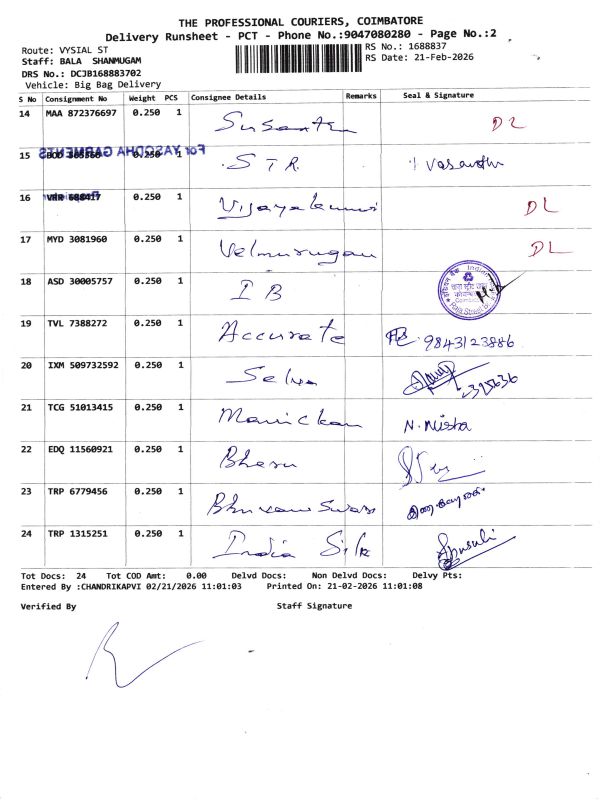 THE PROFESSIONAL COURIERS, COIMBATORE
Delivery Runsheet - PCT - Phone No.:9047080280 - Page No.:2
Route: VYSIAL ST
RS No.: 1688837
Staff: BALA SHANMUGAM
RS Date: 21-Feb-2026
DRS No.: DCJB168883702
Vehicle: Big Bag Delivery
S No Consignment No Weight PCS Consignee Details Remarks Seal & Signature
14 MAA 872376697 0.250 1 Susanth DL
15 0.250 1 STR Vasanthi
For YASODHA GARMENTS
16 0.250 1 Vijayakumar DL
17 MYD 3081960 0.250 1 Velmurugan DL
18 ASD 30005757 0.250 1 I B
19 TVL 7388272 0.250 1 Accurate 9843123886
20 IXM 509732592 0.250 1 Selva
21 TCG 51013415 0.250 1 Manickam N. Nisha
22 EDQ 11560921 0.250 1
23 TRP 6779456 0.250 1
24 TRP 1315251 0.250 1 India Silk
Tot Docs: 24 Tot COD Amt: 0.00 Delvd Docs: Non Delvd Docs: Delvy Pts:
Entered By :CHANDRIKAPVI 02/21/2026 11:01:03 Printed On: 21-02-2026 11:01:08
Verified By Staff Signature